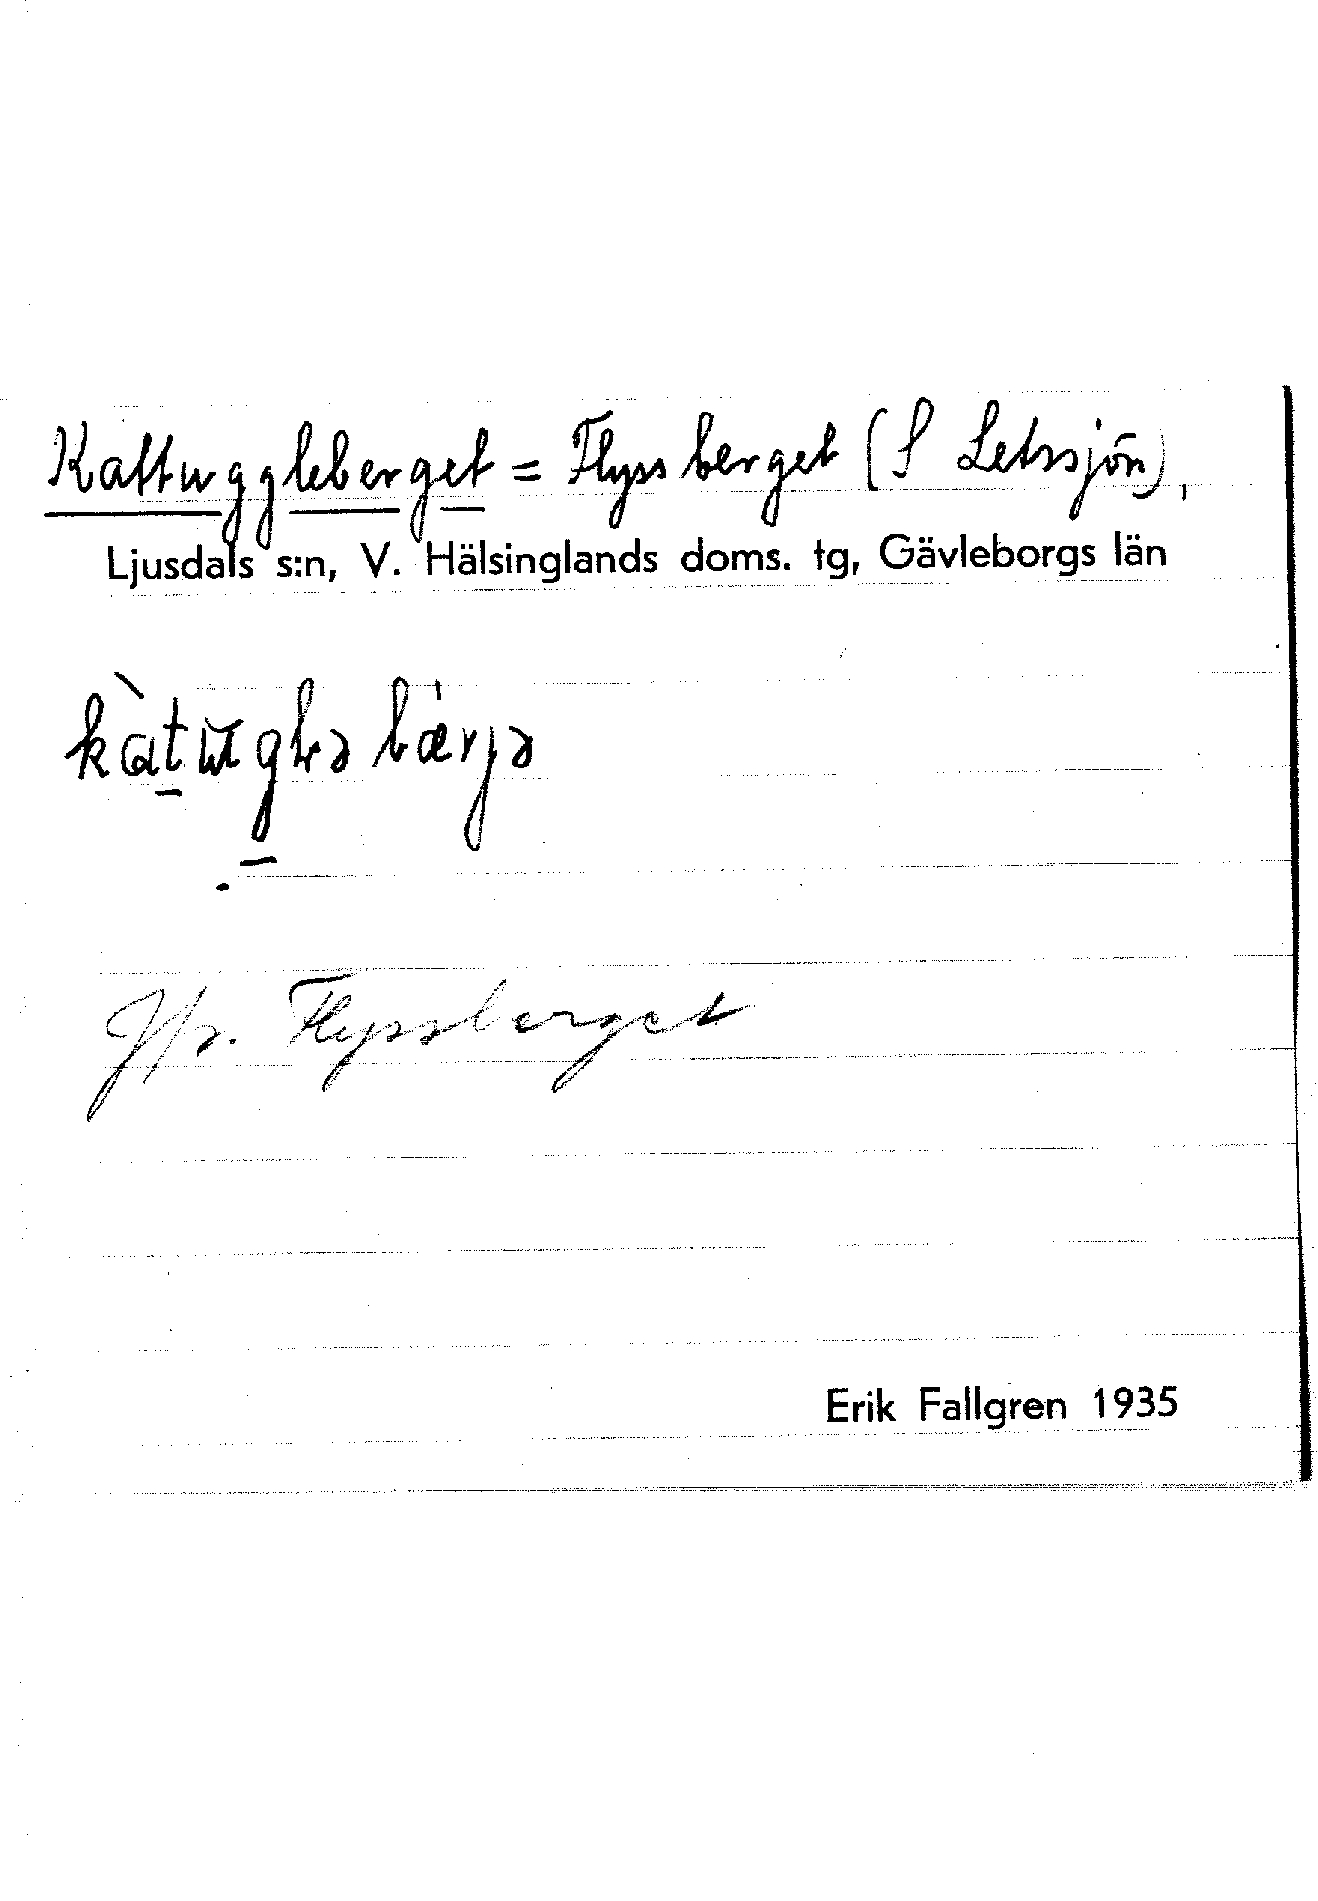 Kattuggleberget = Flyssberget (S Letssjön),
Ljusdals s:n, V. Hälsinglands doms. tg, Gävleborgs län
Jfr. Flyssberget
Erik Fallgren 1935